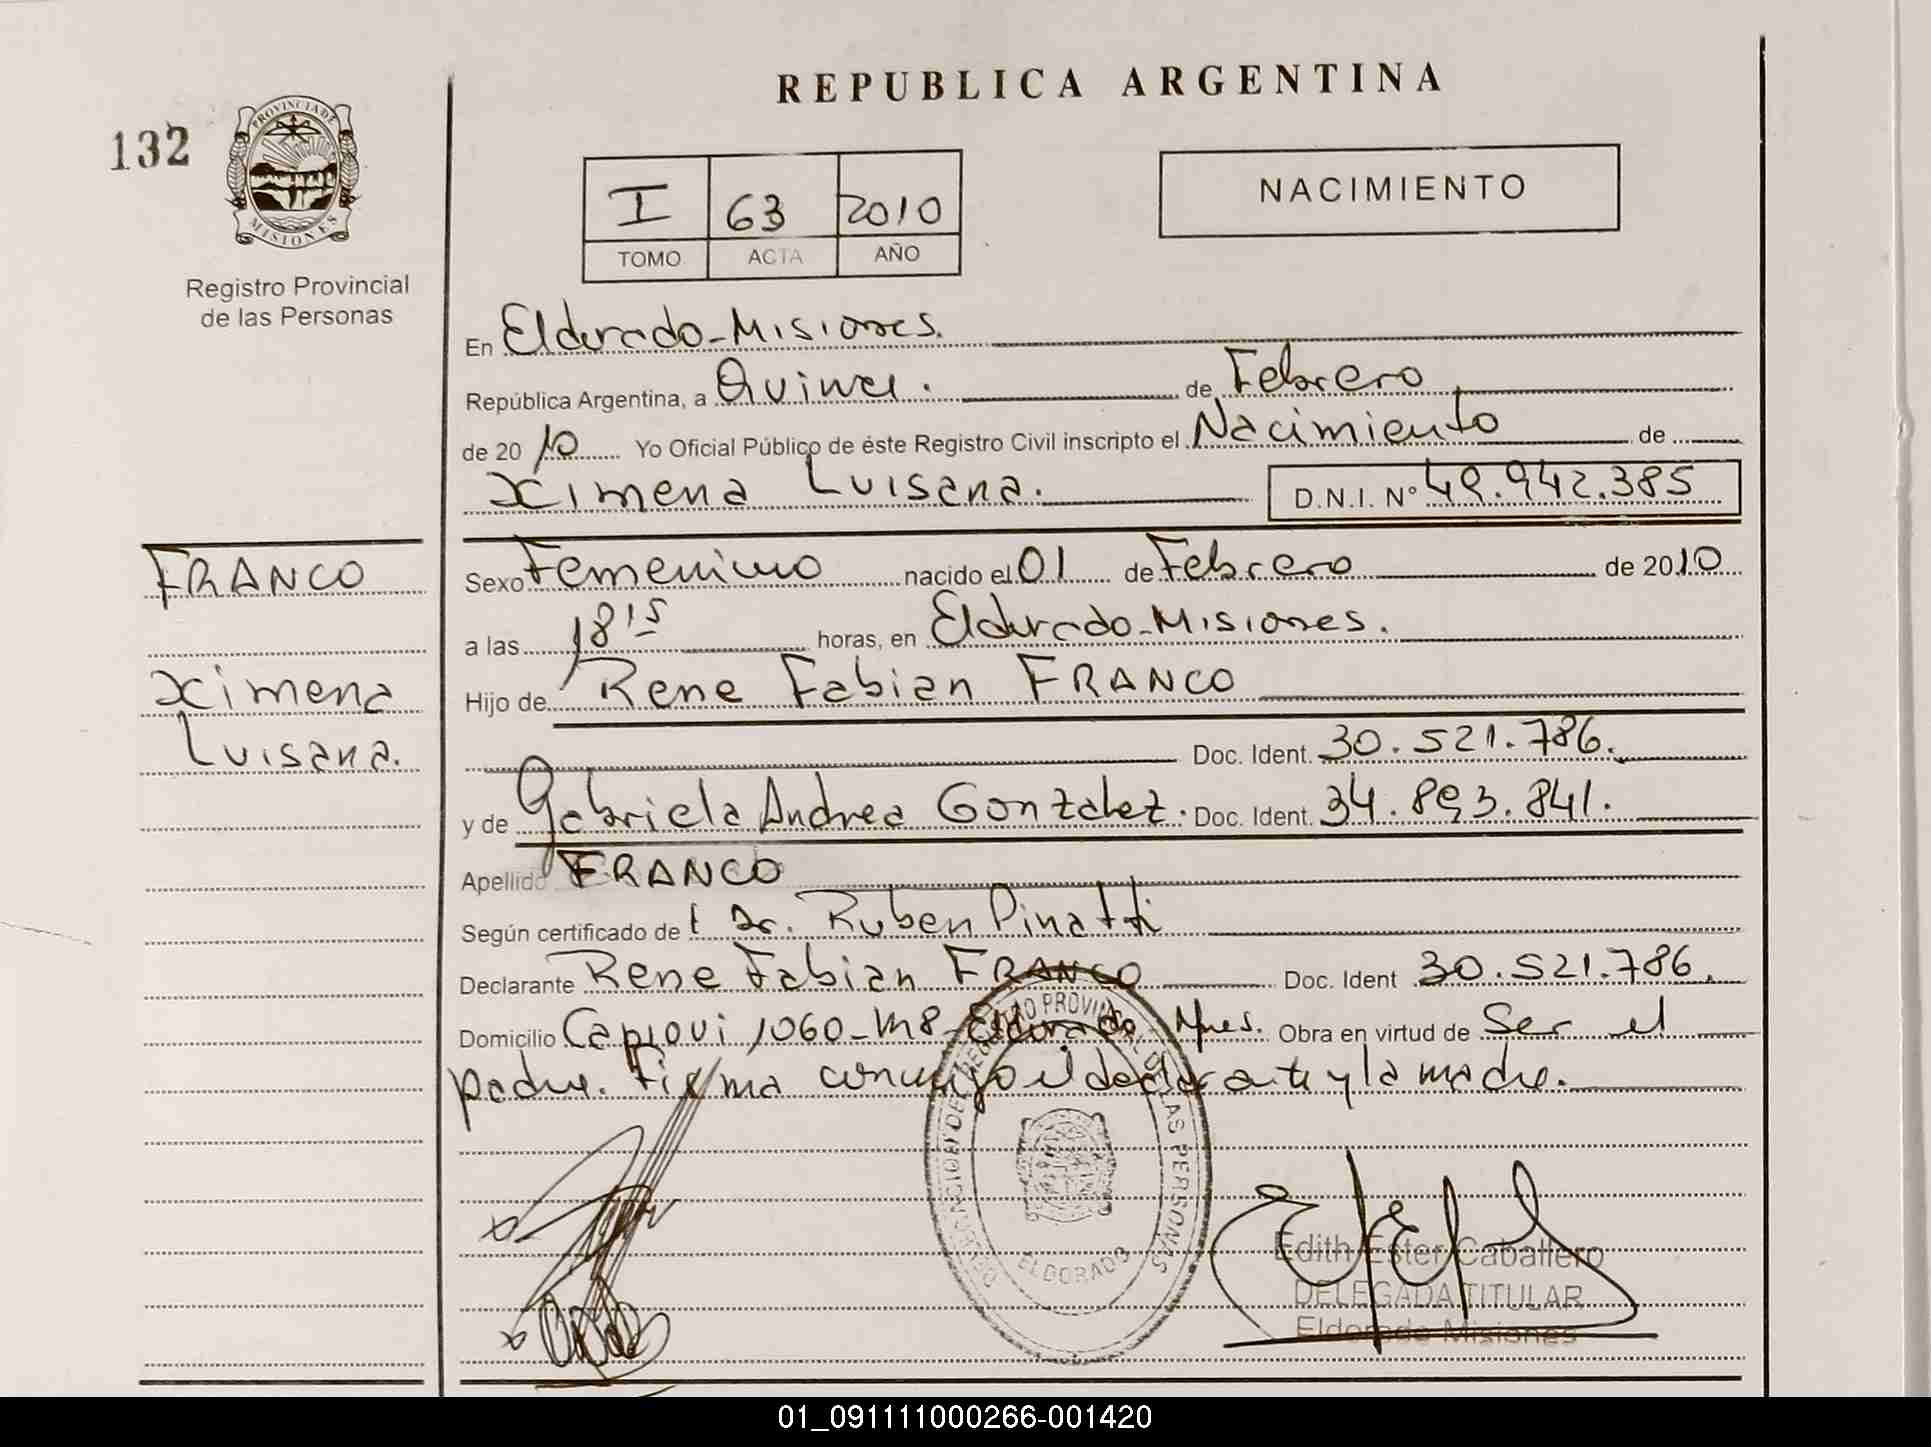 REPUBLICA ARGENTINA
132
PROVINCIA DE
MISIONES
Registro Provincial
de las Personas
I 63 2010
TOMO ACTA AÑO
NACIMIENTO
En Eldorado-Misiones.
República Argentina, a Quince. de Febrero
de 20 10 Yo Oficial Público de éste Registro Civil inscripto el Nacimiento de
Ximena Luisana. D.N.I. Nº 49.942.385
FRANCO
Ximena
Luisana.
Sexo Femenino nacido el 01 de Febrero de 2010
a las 18 15 horas, en Eldorado-Misiones.
Hijo de Rene Fabian FRANCO
Doc. Ident. 30.521.786.
y de Gabriela Andrea Gonzalez. Doc. Ident. 34.893.841.
Apellido FRANCO
Según certificado de Dr. Ruben Pinatti
Declarante Rene Fabian FRANCO Doc. Ident 30.521.786.
Domicilio Capiovi 1060-M8-Eldorado Mnes. Obra en virtud de Ser el
padre. Firma conmigo el declarante y la madre.
DELEGACION DEL REGISTRO PROVINCIAL DE LAS PERSONAS
ELDORADO
Edith Ester Caballero
DELEGADA TITULAR
Eldorado Misiones
01_091111000266-001420